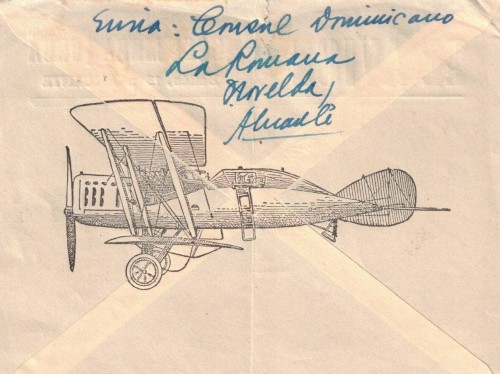 Envia: Consul Dominicano
La Romana
Novelda,
Alicante